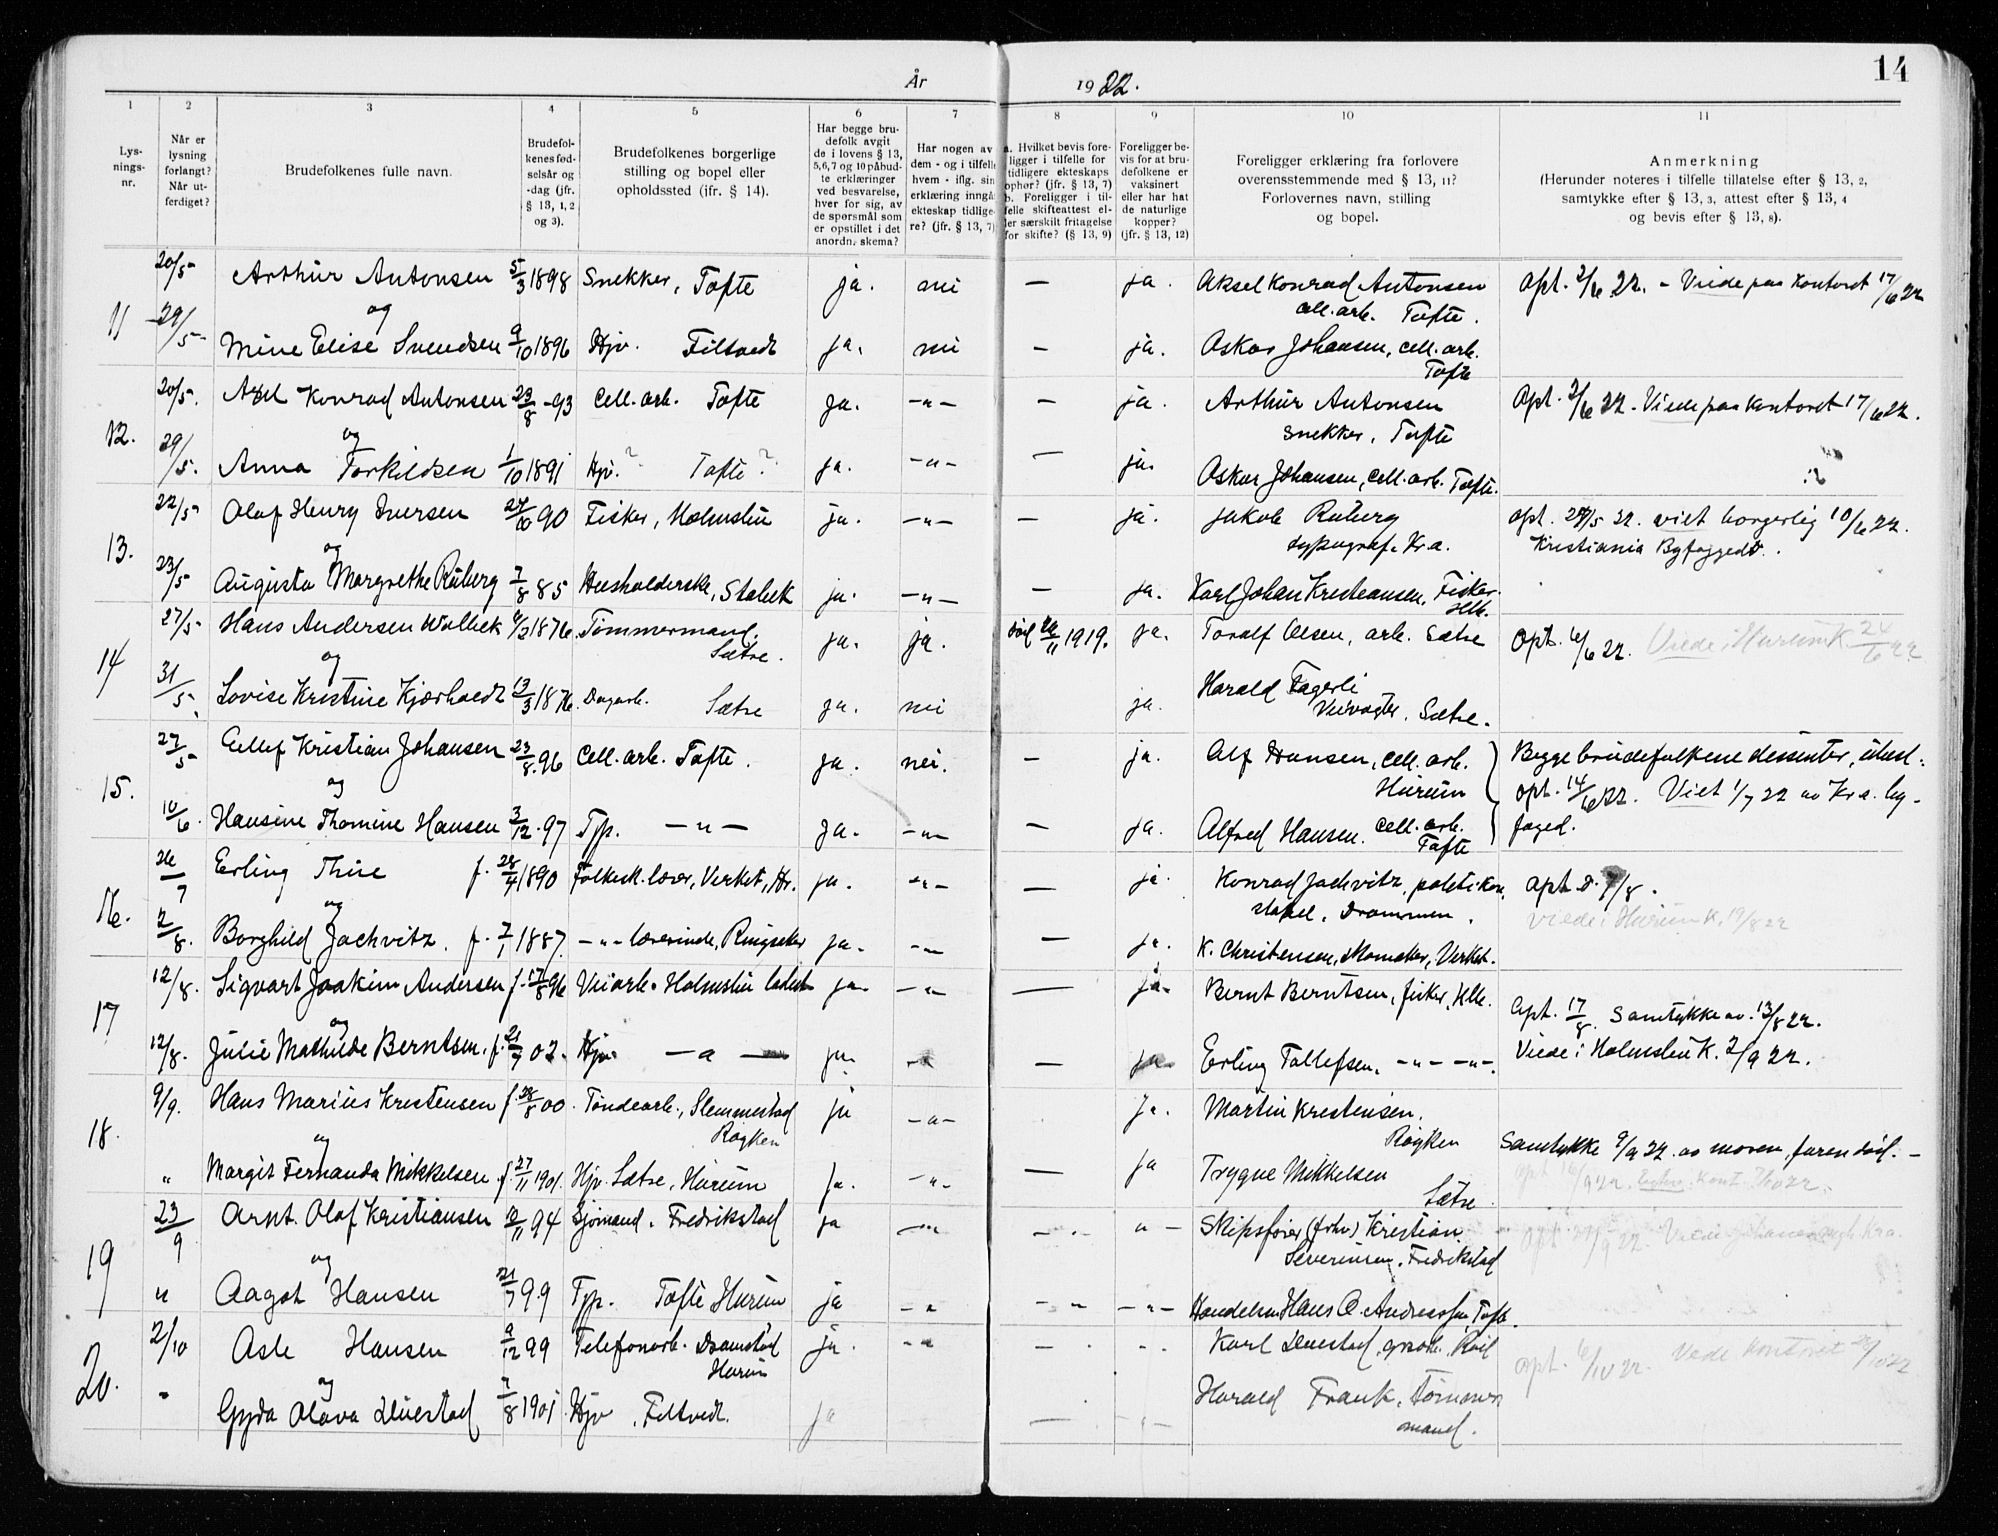 14
År 1922.
1 2 3 4 5 6 7 8 9 10 11
Lysnings-nr.
Når er lysning forlangt? Når utferdiget?
Brudefolkenes fulle navn.
Brudefolkenes fødselsår og -dag (jfr. § 13, 1, 2 og 3).
Brudefolkenes borgerlige stilling og bopel eller opholdssted (jfr. § 14).
Har begge brudefolk avgit de i lovens § 13, 5,6,7 og 10 påbudte erklæringer ved besvarelse, hver for sig, av de spørsmål som er opstillet i det anordn. skema?
Har nogen av dem - og i tilfelle hvem - iflg. sin erklæring inngå ekteskap tidligere? (jfr. § 13, 7)
a. Hvilket bevis foreligger i tilfelle for tidligere ekteskaps ophør? (jfr. § 13, 7) b. Foreligger i tilfelle skifteattest eller særskilt fritagelse for skifte? (§ 13, 9)
Foreligger bevis for at brudefolkene er vaksinert eller har hat de naturlige kopper? (jfr. § 13, 12)
Foreligger erklæring fra forlovere overensstemmende med § 13, 11? Forlovernes navn, stilling og bopel.
Anmerkning (Herunder noteres i tilfelle tillatelse efter § 13, 2, samtykke efter § 13, 3, attest efter § 13, 4 og bevis efter § 13, 8).
20/5 Arthur Antonsen 5/3 1898 Snekker, Tofte ja. nei — ja. Aksel Konrad Antonsen cell. arb. Tofte. Opt. 2/6 22. - Viede paa kontoret 17/6 22
11 29/5 og
Mine Elise Svendsen 9/10 1896 Hjv. Filtvedt ja. nei — ja. Oskar Johansen, cell. arb. Tofte
20/5. Axel Konrad Antonsen 23/8 -93 Cell. arb. Tofte ja. -"- — ja. Arthur Antonsen snekker, Tofte Opt. 2/6 22. Viede paa kontoret 17/6 22.
12. og
29/5. Anna Torkildsen 1/10 1891 Hjv.? Tofte? ja. -"- — ja. Oskar Johansen, cell. arb. Tofte.
22/5 Olaf Henry Iversen 27/10 90 Fisker, Holmsbu ja. -"- — ja. Jakob Ruberg typograf. Kr.a. opt. 29/5 22. viet borgerlig 10/6 22. Kristiania Byfogged.
13. og
23/5 Augusta Margrethe Ruberg 7/8 85 Husholderske, Stabek ja. -"- — ja. Karl Johan Kristiansen, Fisker. Hlb.
27/5 Hans Andersen Wulbek 1876. Tømmermand. Sætre. ja. ja. død 26/11 1919. ja. Toralf Olsen, arb. Sætre Opt. 6/6 22. Viede i Hurum K. 24/6 22
14 og
31/5. Lovise Kristine Kjærhoedt 13/3 1876. Dagarb. Sætre ja. nei ja. Harald Fagerli Veivogter. Sætre.
27/5 Eilef Kristian Johansen 23/8. 96 Cell. arb. Tofte. ja. nei. — ja. Alf Hansen, cell. arb. Hurum Begge brudefolkene dissenter,
15. og opt. 14/6 22. Viet 1/7 22 av Kr.a. by-
10/6. Hansine Thomine Hansen 3/12. 97 Typ. -"- ja. -"- — ja. Alfred Hansen. cell. arb. Tofte foged.
26/7 Erling Thue f. 28/4 1890 Folkesk. lærer, Verket, Hr. ja. -"- — ja. Konrad Jachvitz, politikonstabel, Drammen. opt d. 7/8.
viede i Hurum K. 19/8 22
16. og
2/8. Borghild Jachvitz. f. 7/1 1887. -"- lærerinde, Ringsaker ja. -"- — ja. K. Christensen, skomaker, Verket.
12/8. Sigvart Joakim Andersen f. 17/8 96 Veiarb. Holmsbu ladest ja. -"- — ja. Bernt Berntsen, fisker, Hlb. Opt. 17/8. Samtykke av. 13/8 22.
17 og
12/8. Julie Mathilde Berntsen. f. 21/7 02. Hjv. -"- ja. -"- — ja. Erling Tollefsen. -"- -"-. Viede i Holmsbu K. 2/9 22.
9/9. Hans Marius Kristensen f. 28/8 00. Tøndearb., Slemmestad Røyken ja -"- ja. Martin Kristensen. Røyken
18. og Samtykke 9/9 22. av moren, faren død. -
" Margit Fernanda Mikkelsen. f. 27/11 1901. Hjv. Sætre, Hurum ja. -"- — ja Trygve Mikkelsen Sætre. opt 16/9 22.
23/9 Arnt Olaf Kristiansen 94 Sjømand. Fredrikstad ja -"- — " - Skipsfører (frhv) Kristian Severinsen, Fredrikstad
19 og
" Aagot Hansen 21/7 99 Typ. Tofte Hurum ja -"- — " -"- Handelsm Hans A. Andreassen, Tofte.
2/10 Asle Hansen 9/12 99 Telefonarb. Dramstad Hurum ja. -"- — Karl opt. 6/10 22. Viede kontoret
20. og
" Gyda Olava 8 1901 Hjv, Filtvedt. ja — -"- Harald Frank, Tømmermand.